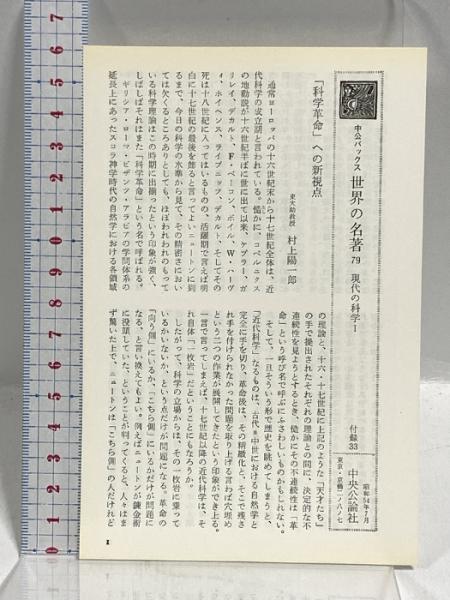 中公バックス
世界の名著 79 現代の科学I
付録33
昭和54年7月
中央公論社
東京・京橋二ノ八ノ七
「科学革命」への新視点
東大助教授 村上陽一郎
通常ヨーロッパの十六世紀末から十七世紀全体は、近
代科学の成立期と言われている。慥かに、コペルニクス
の地動説が十六世紀半ばに世に出て以来、ケプラー、ガ
リレイ、デカルト、F・ベーコン、ボイル、W・ハーヴ
ィ、ホイヘンス、ライプニッツ、デカルト、そしてその
死は十八世紀に入ってはいるものの、活躍期で言えば明
白に十七世紀の最後を飾ると言ってよいニュートンに到
るまで、今日の科学の水準から見て、その精密さにおい
ては欠くるところありとしても、ほぼわれわれのもって
いる科学理論はこの時期に出揃ったという印象が強く、
しばしばそれはまた「科学革命」という名で呼ばれる。
ギリシア・ローマ・ビザンツ・アラビアの学問体系の
延長上にあったスコラ神学時代の自然学における各領域
の理論と、十六、十七世紀に上記のような「天才たち」
の手で提出されたそれぞれの理論との間に、決定的な不
連続性を見ようとするとき、慥かにその不連続性は「革
命」という呼び名で呼ぶにふさわしいものかもしれない。
そして、一旦そういう形で歴史を眺めてしまうと、
「近代科学」なるものは、古代=中世における自然学と
完全に手を切り、革命後は、その精緻化と、そこで残さ
れ手を付けられなかった問題を取り上げる言わば穴埋め
という二つの作業が展開してきたという印象ができ上る。
一言で言ってしまえば、十七世紀以降の近代科学は、そ
れ自体「一枚岩」だということにもなろうか。
したがって、科学の立場からは、その一枚岩に乗って
いるかいないか、という点だけが問題になる。革命の
「向う側」にいるか、「こちら側」にいるかだけが問題に
なる、と言い換えてもよい。例えばニュートンが錬金術
に没頭していた、ということが判ってくると、人々はま
ず驚いた上で、ニュートンは「こちら側」の人だけれど
1
0 1 2 3 4 5 6 7